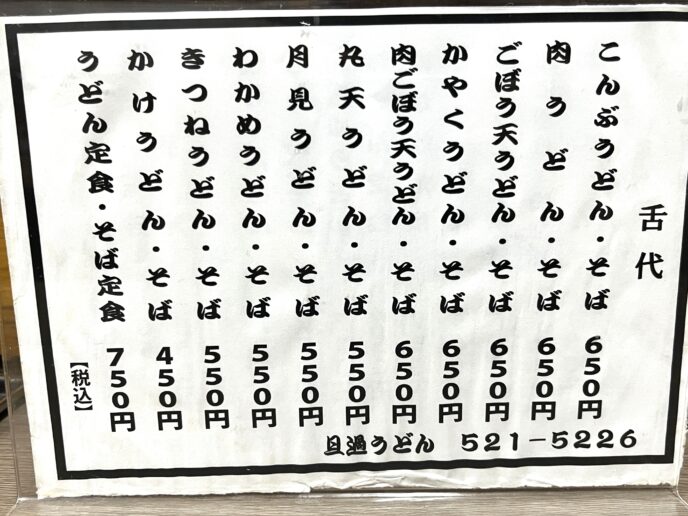 舌代
こんぶうどん・そば 650円
肉うどん・そば 650円
ごぼう天うどん・そば 650円
かやくうどん・そば 650円
肉ごぼう天うどん・そば 650円
丸天うどん・そば 550円
月見うどん・そば 550円
わかめうどん・そば 550円
きつねうどん・そば 550円
かけうどん・そば 450円
うどん定食・そば定食 750円
【税込】
旦過うどん 521-5226